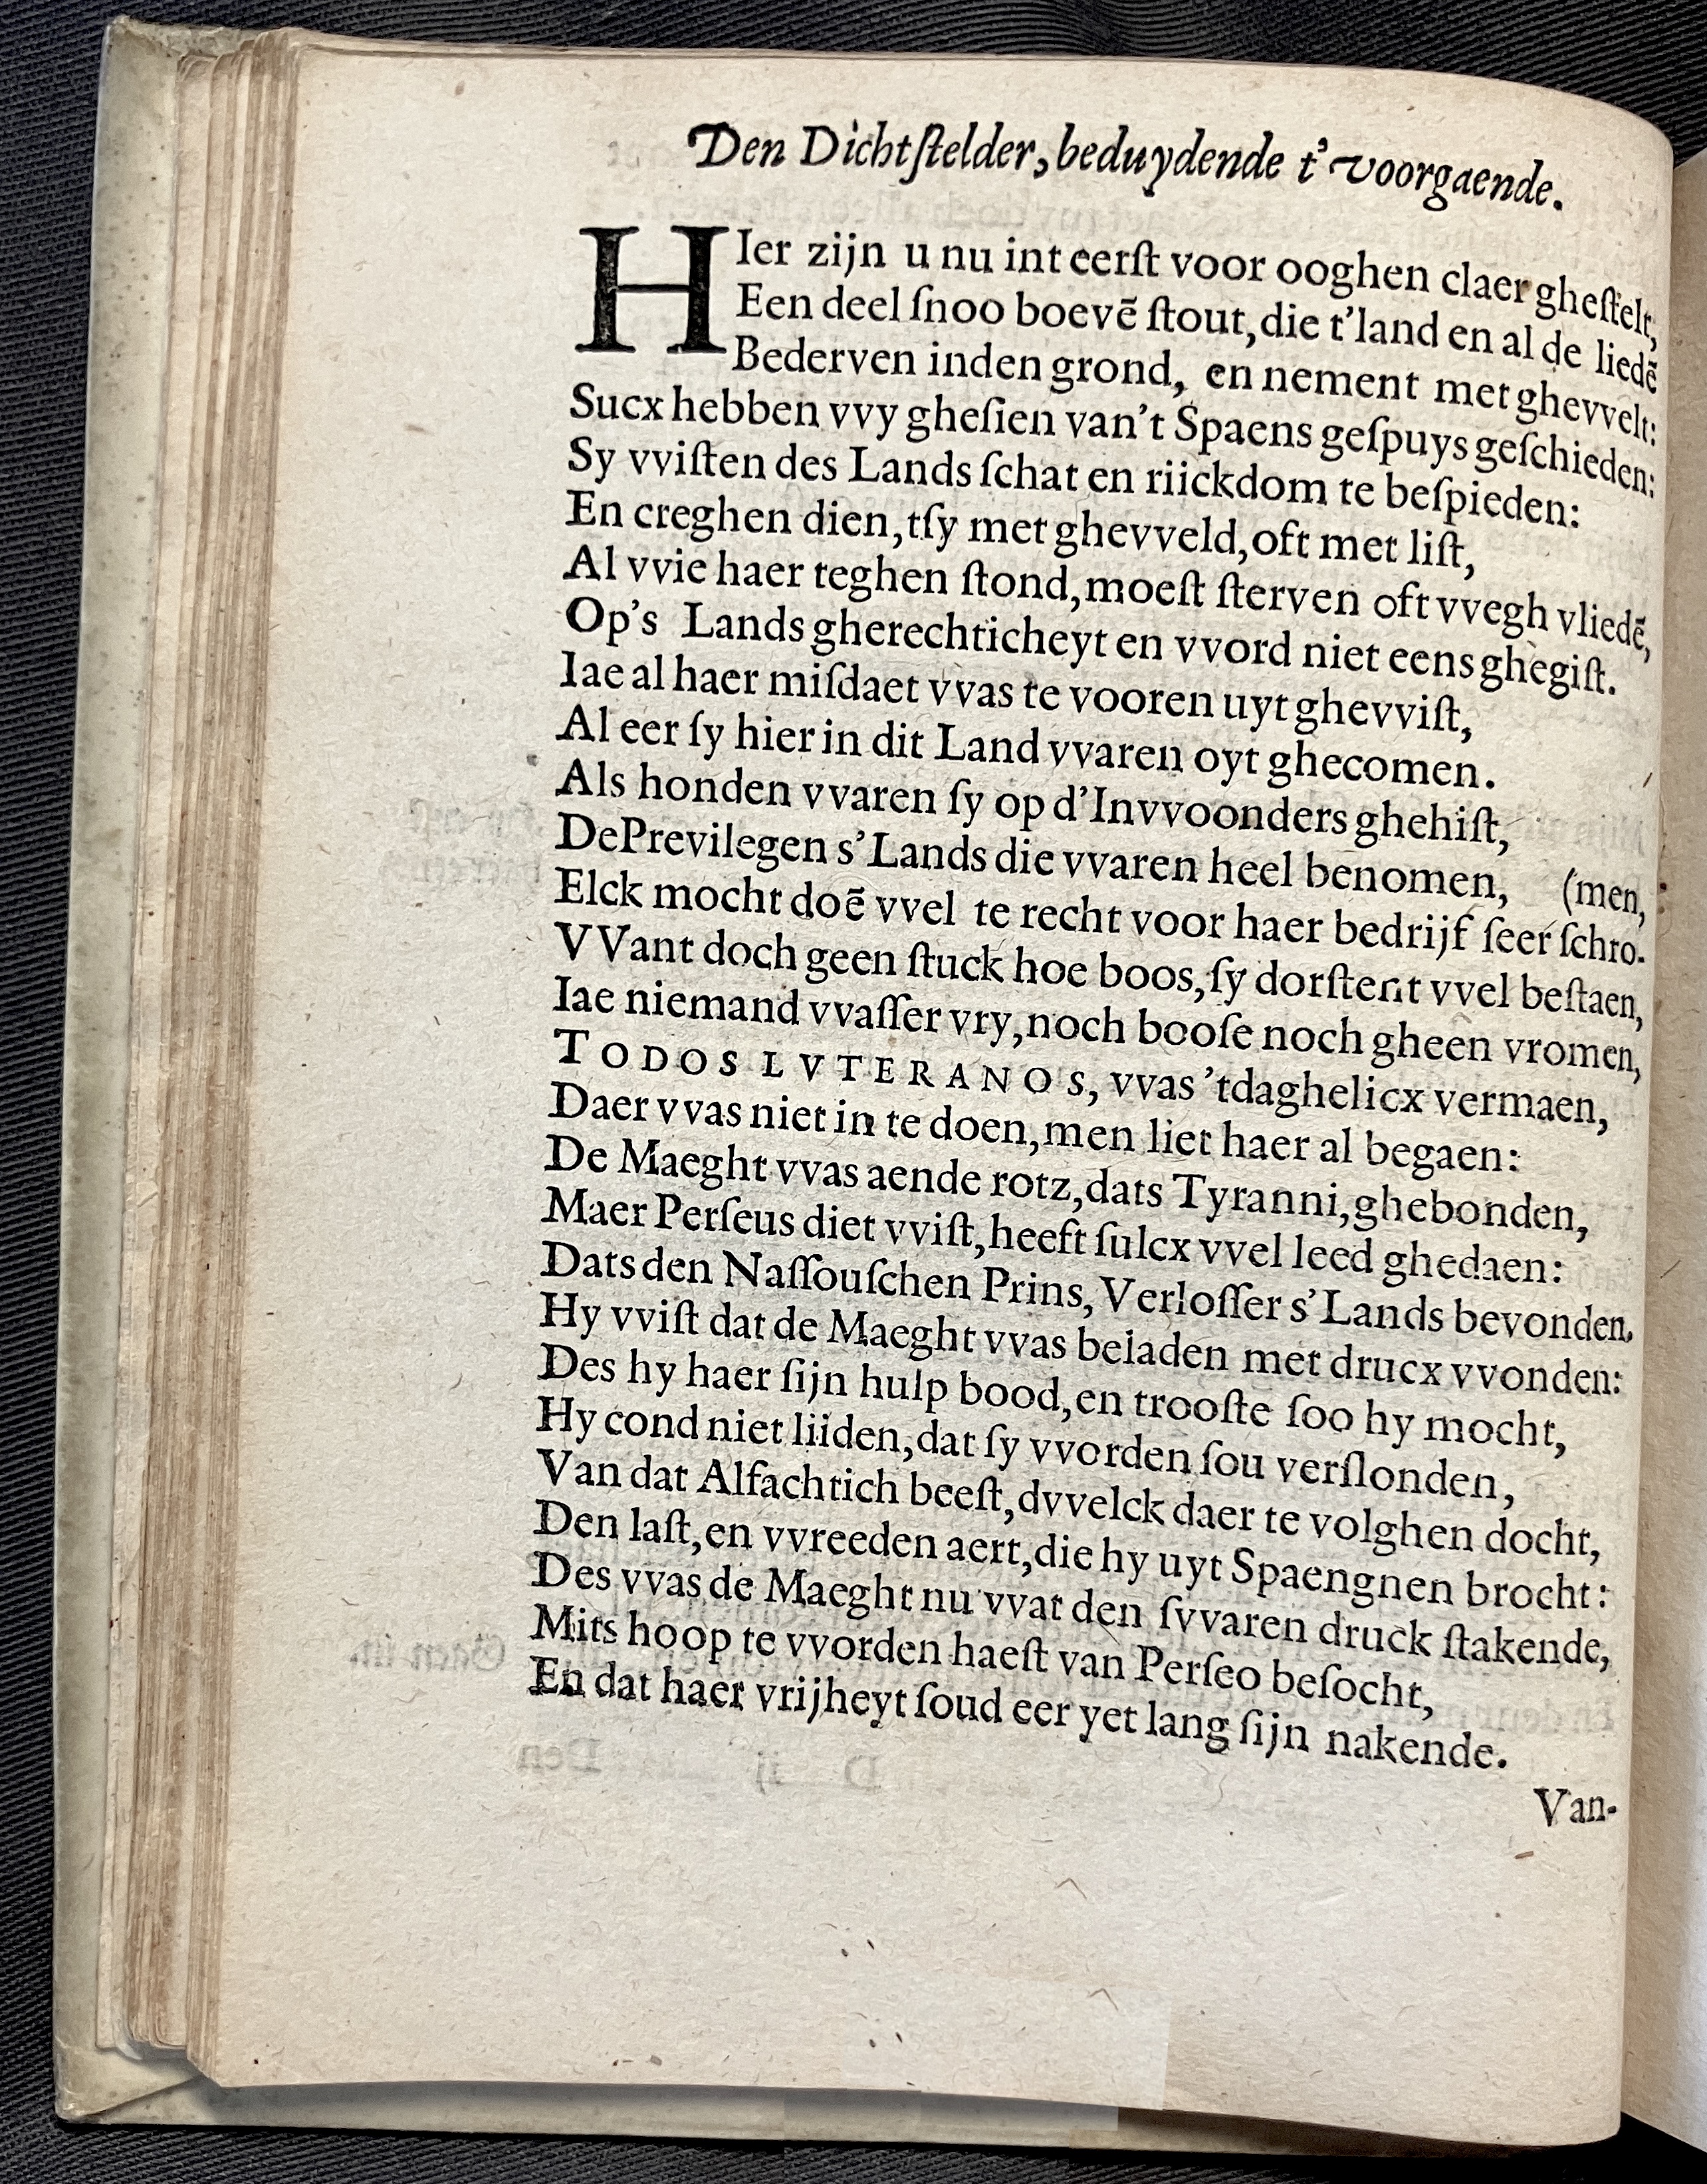 Den Dichtſtelder, beduydende t' voorgaende.
HIer zijn u nu int eerſt voor ooghen claer gheſtelt,
Een deel ſnoo boevē ſtout, die t'land en al de liedē
Bederven inden grond, en nement met ghevvelt:
Sucx hebben vvy gheſien van't Spaens geſpuys geſchieden:
Sy vviſten des Lands ſchat en riickdom te beſpieden:
En creghen dien, tſy met ghevveld, oft met liſt,
Al vvie haer teghen ſtond, moeſt ſterven oft vvegh vliedē,
Op's Lands gherechticheyt en vvord niet eens ghegiſt.
Iae al haer miſdaet vvas te vooren uyt ghevviſt,
Al eer ſy hier in dit Land vvaren oyt ghecomen.
Als honden vvaren ſy op d'Invvoonders ghehiſt,
De Previlegen s'Lands die vvaren heel benomen, (men,
Elck mocht doē vvel te recht voor haer bedrijf ſeer ſchro-
VVant doch geen ſtuck hoe boos, ſy dorſtent vvel beſtaen,
Iae niemand vvaſſer vry, noch booſe noch gheen vromen,
TODOS LVTERANOS, vvas 'tdaghelicx vermaen,
Daer vvas niet in te doen, men liet haer al begaen:
De Maeght vvas aende rotz, dats Tyranni, ghebonden,
Maer Perſeus diet vviſt, heeft ſulcx vvel leed ghedaen:
Dats den Naſſouſchen Prins, Verloſſer s'Lands bevonden.
Hy vviſt dat de Maeght vvas beladen met drucx vvonden:
Des hy haer ſijn hulp bood, en trooſte ſoo hy mocht,
Hy cond niet liiden, dat ſy vvorden ſou verſlonden,
Van dat Alfachtich beeſt, dvvelck daer te volghen docht,
Den laſt, en vvreeden aert, die hy uyt Spaengnen brocht:
Des vvas de Maeght nu vvat den ſvvaren druck ſtakende,
Mits hoop te vvorden haeſt van Perſeo beſocht,
En dat haer vrijheyt ſoud eer yet lang ſijn nakende.
Van-